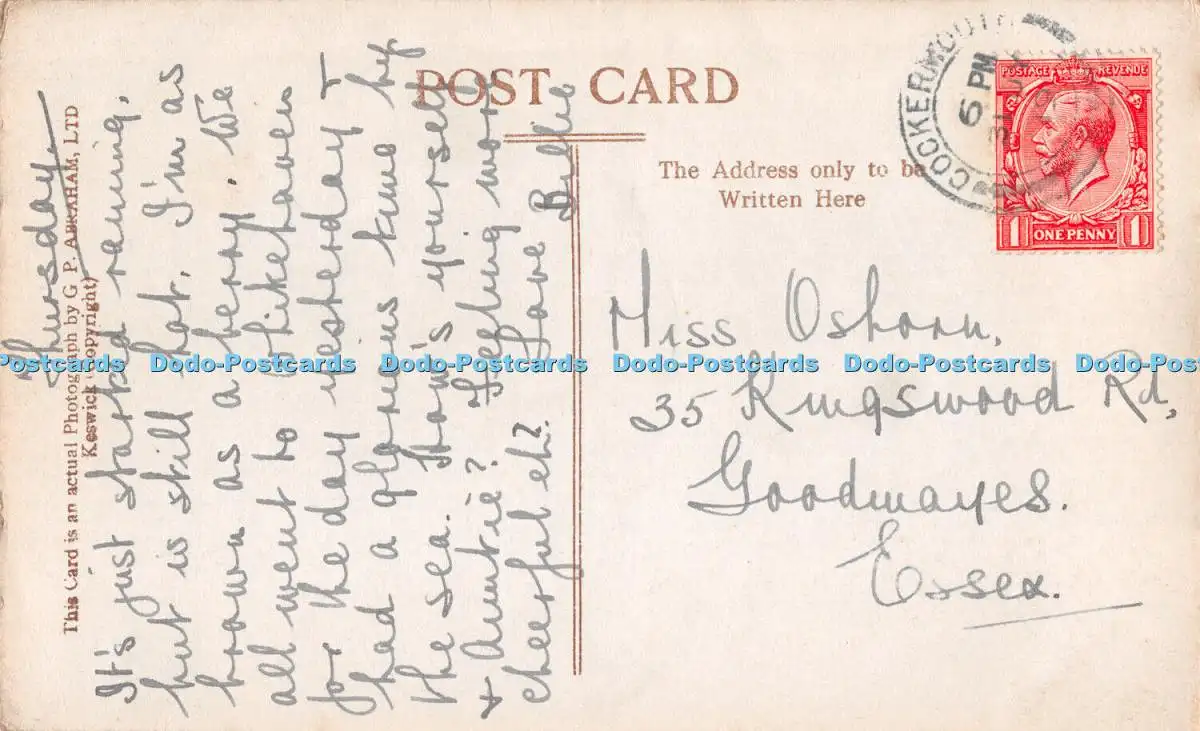 POST CARD
The Address only to be
Written Here
COCKERMOUTH
6 PM
POSTAGE REVENUE
1 ONE PENNY 1
This Card is an actual Photograph by G. P. ABRAHAM, LTD
Keswick (copyright)
Thursday.
It's just started raining,
but is still hot. I'm as
brown as a berry. We
all went to Whitehaven
for the day yesterday &
had a glorious time by
the sea. How's yourself
& Auntie? Feeling more
cheerful eh? Love Billie
Miss Osborn,
35 Kingswood Rd,
Goodmayes.
Essex.
Dodo-Postcards Dodo-Postcards Dodo-Postcards Dodo-Postcards Dodo-Postcards Dodo-Postcards